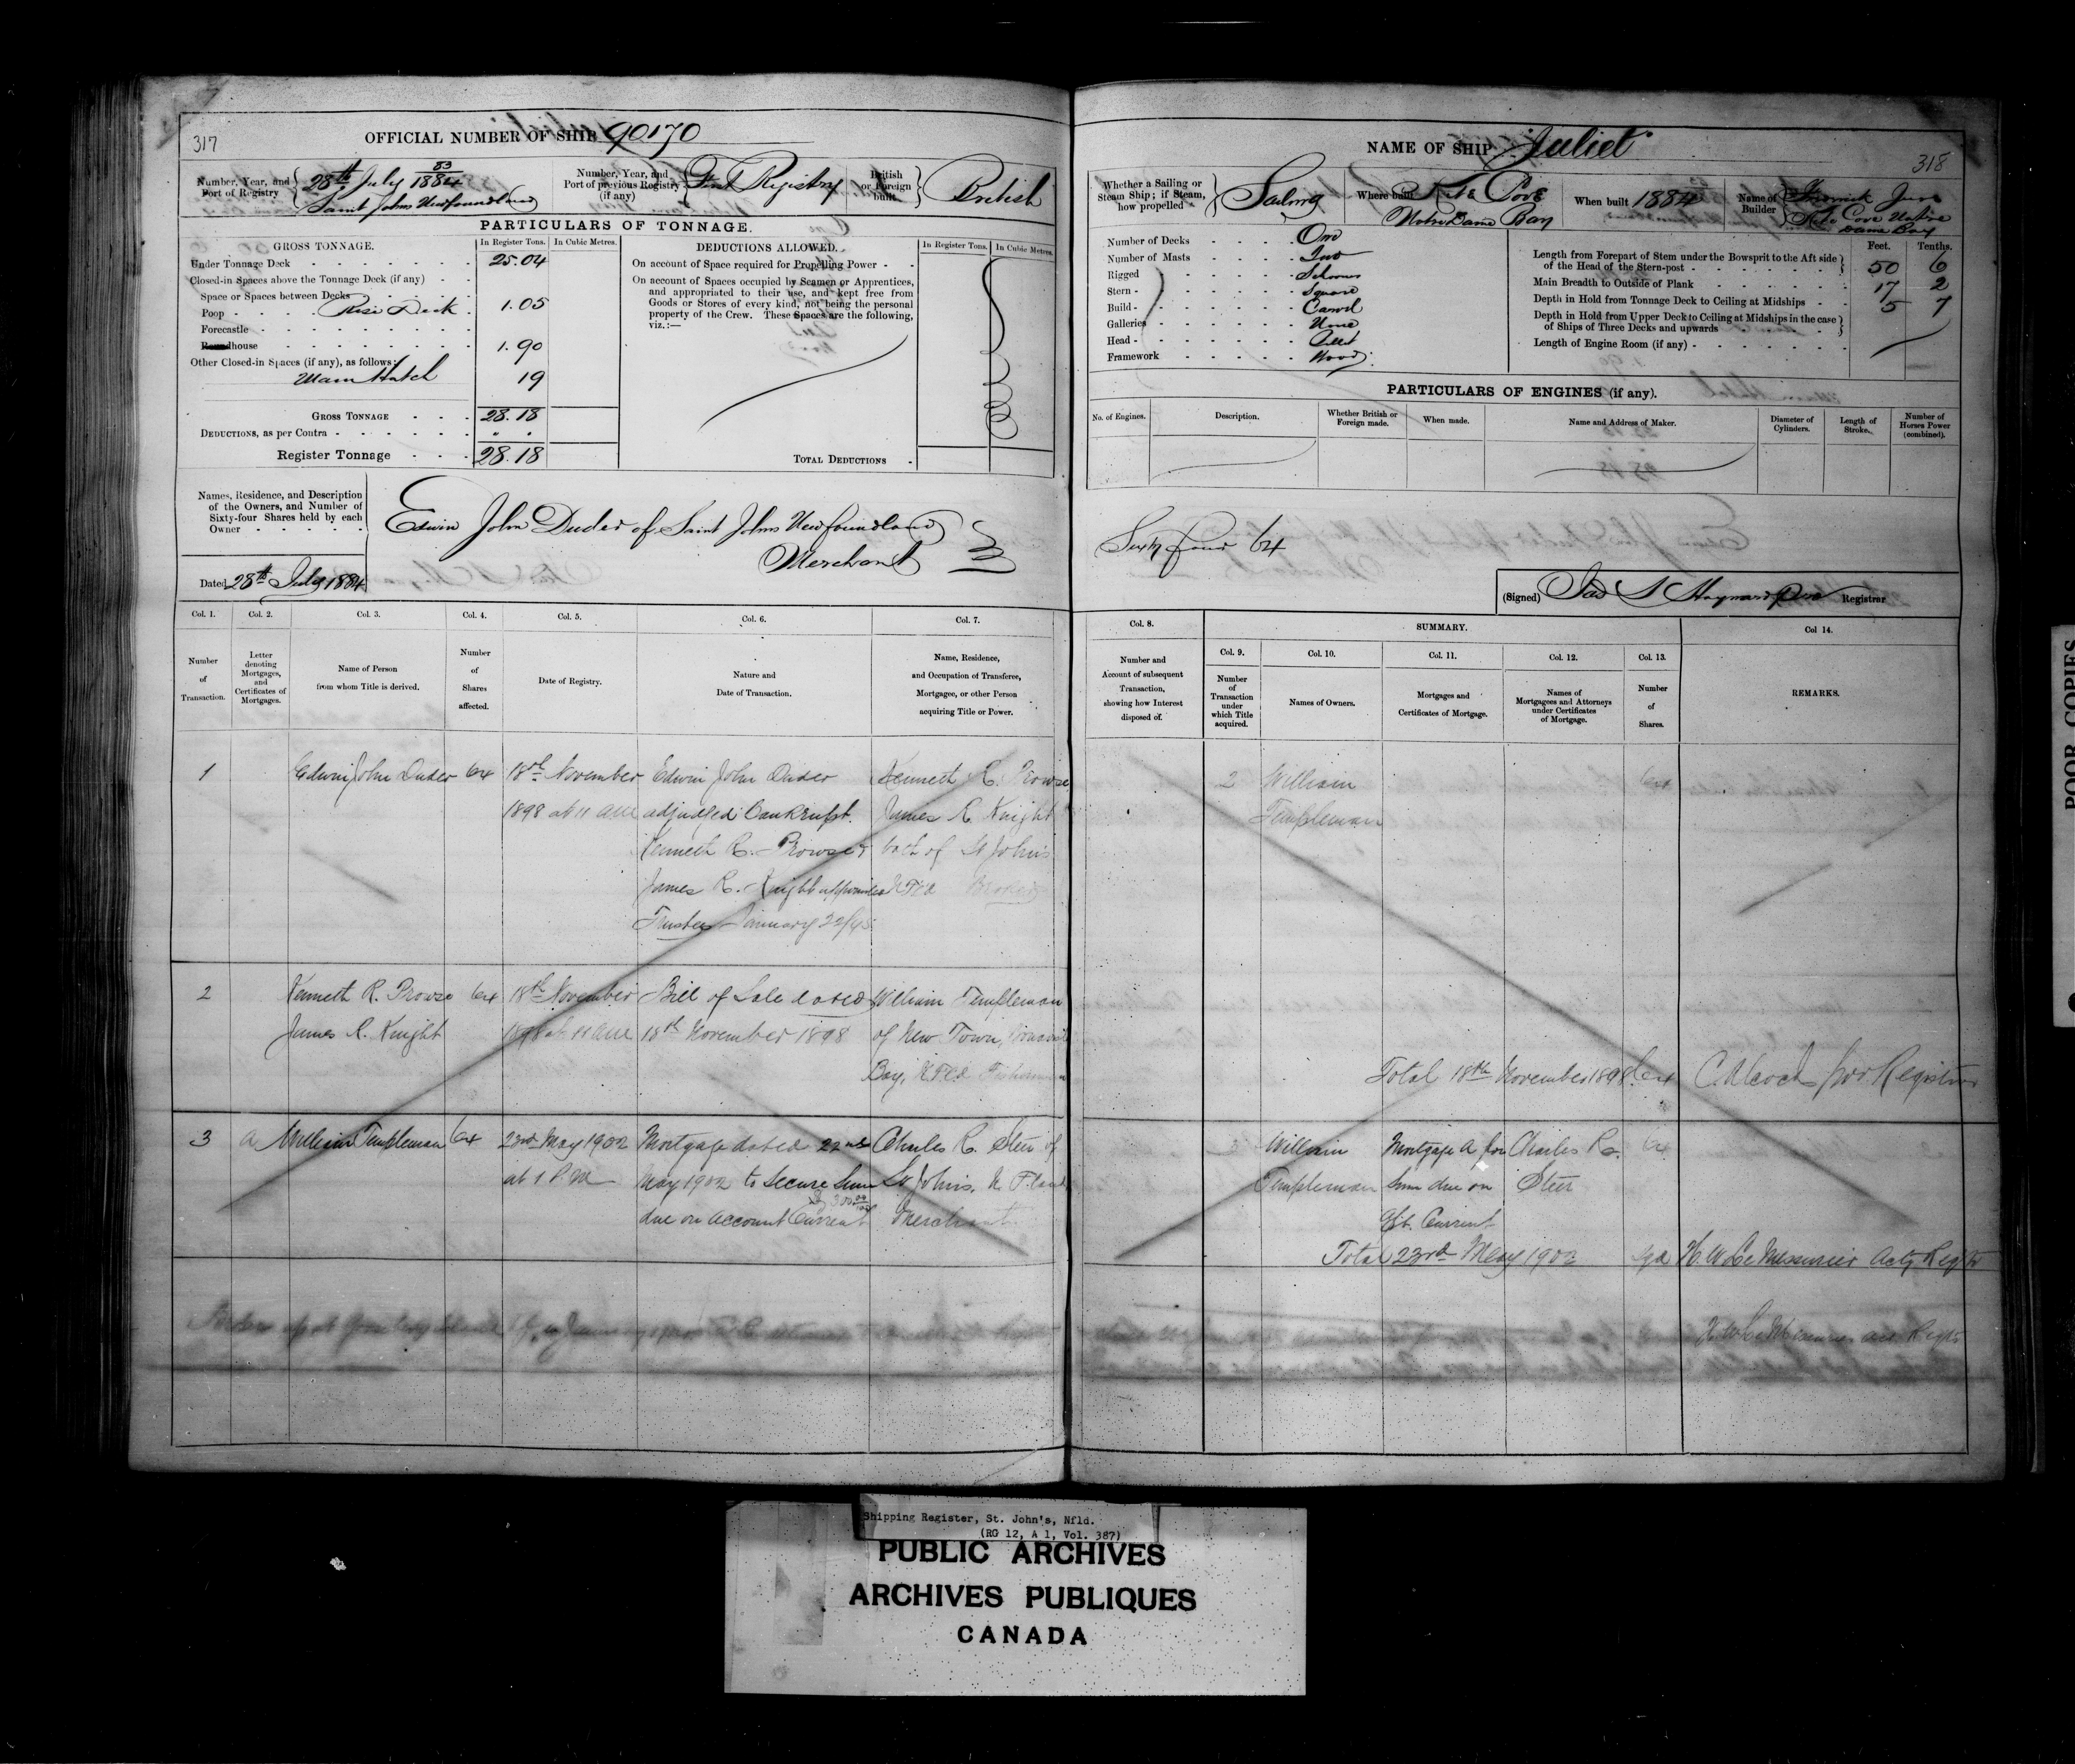 317
OFFICIAL NUMBER OF SHIP 90170
Number, Year, and Port of Registry
28th July 83/1884
Saint Johns Newfoundland
Number, Year, and Port of previous Registry (if any)
First Registry
British or Foreign built
British
PARTICULARS OF TONNAGE.
GROSS TONNAGE.
In Register Tons.
In Cubic Metres.
Under Tonnage Deck 25.04
Closed-in Spaces above the Tonnage Deck (if any)
Space or Spaces between Decks
Poop Rise Deck 1.05
Forecastle
Roundhouse 1.90
Other Closed-in Spaces (if any), as follows:
Main Hatch 19
GROSS TONNAGE 28.18
DEDUCTIONS, as per Contra
Register Tonnage 28.18
DEDUCTIONS ALLOWED.
In Register Tons.
In Cubic Metres.
On account of Space required for Propelling Power
On account of Spaces occupied by Seamen or Apprentices,
and appropriated to their use, and kept free from
Goods or Stores of every kind, not being the personal
property of the Crew. These Spaces are the following,
viz.:—
TOTAL DEDUCTIONS
Names, Residence, and Description
of the Owners, and Number of
Sixty-four Shares held by each
Owner
Edwin John Duder of Saint Johns Newfoundland
Merchant
Dated 28th July 1884
Col. 1.
Number of Transaction.
Col. 2.
Letter denoting Mortgages, and Certificates of Mortgages.
Col. 3.
Name of Person from whom Title is derived.
Col. 4.
Number of Shares affected.
Col. 5.
Date of Registry.
Col. 6.
Nature and Date of Transaction.
Col. 7.
Name, Residence, and Occupation of Transferee, Mortgagee, or other Person acquiring Title or Power.
1 Edwin John Duder 64 18th November Edwin John Duder Kenneth R. Prowse
1898 at 11 am adjudged Bankrupt. James R. Knight
Kenneth R. Prowse & both of St Johns
James R. Knight appointed
Trustees January 22/95
2 Kenneth R. Prowse 64 18th November Bill of Sale dated William Templeman
James R. Knight 1898 at 11 am 18th November 1898 of New Town,
Bay, NFld Fisherman
3 A William Templeman 64 23rd May 1902 Mortgage dated 22nd Charles R. Steer of
at 1 P.M May 1902 to Secure Sum St Johns, N. F. land
due on Account Current Merchant
318
NAME OF SHIP "Juliet"
Whether a Sailing or Steam Ship; if Steam, how propelled
Sailing
Where built
Nite Cove
Notre Dame Bay
When built 1884
Name of Builder
Cove Notre
Dame Bay
Number of Decks One
Number of Masts Two
Rigged Schooner
Stern Square
Build Carvel
Galleries None
Head
Framework Wood
Feet. Tenths.
Length from Forepart of Stem under the Bowsprit to the Aft side
of the Head of the Stern-post 50 6
Main Breadth to Outside of Plank 17 2
Depth in Hold from Tonnage Deck to Ceiling at Midships 5 7
Depth in Hold from Upper Deck to Ceiling at Midships in the case
of Ships of Three Decks and upwards
Length of Engine Room (if any)
PARTICULARS OF ENGINES (if any).
No. of Engines.
Description.
Whether British or Foreign made.
When made.
Name and Address of Maker.
Diameter of Cylinders.
Length of Stroke.
Number of Horses Power (combined).
Sixty four 64
(Signed) Jas S Hayward pro Registrar
Col. 8.
Number and Account of subsequent Transaction, showing how Interest disposed of.
SUMMARY.
Col. 9.
Number of Transaction under which Title acquired.
Col. 10.
Names of Owners.
Col. 11.
Mortgages and Certificates of Mortgage.
Col. 12.
Names of Mortgagees and Attorneys under Certificates of Mortgage.
Col. 13.
Number of Shares.
Col 14.
REMARKS.
2 William 64
Templeman
Total 18th November 1898 64 pro Registrar
William Mortgage A for Charles R. 64
Templeman Sum due on Steer
a/c. Current
Total 23rd May 1902 H. W. Le Messurier Actg Regtr
H. W. Le Messurier
POOR COPIES
Shipping Register, St. John's, Nfld.
(RG 12, A 1, Vol. 387)
PUBLIC ARCHIVES
ARCHIVES PUBLIQUES
CANADA